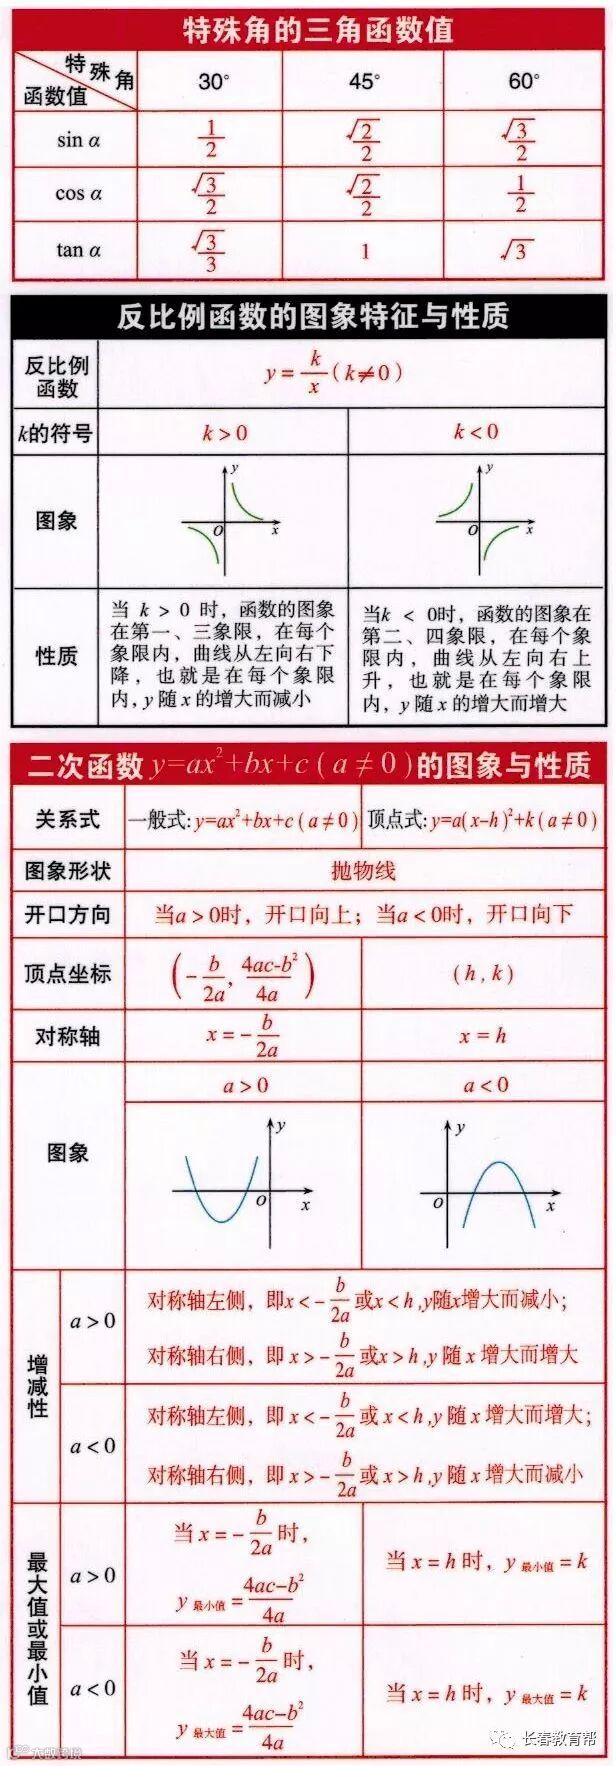 特殊角的三角函数值
特殊角
函数值
30° 45° 60°
sin α 1/2 √2/2 √3/2
cos α √3/2 √2/2 1/2
tan α √3/3 1 √3
反比例函数的图象特征与性质
反比例
函数
y = k/x (k≠0)
k的符号 k>0 k<0
图象
y
O
x
y
O
x
性质
当 k > 0 时，函数的图象
在第一、三象限，在每个
象限内，曲线从左向右下
降，也就是在每个象限
内，y 随 x 的增大而减小
当k < 0时，函数的图象在
第二、四象限，在每个象
限内，曲线从左向右上
升，也就是在每个象限
内，y 随 x 的增大而增大
二次函数 y=ax²+bx+c (a≠0)的图象与性质
关系式 一般式:y=ax²+bx+c (a≠0) 顶点式:y=a(x-h)²+k(a≠0)
图象形状 抛物线
开口方向 当a>0时，开口向上；当a<0时，开口向下
顶点坐标 (-b/2a, 4ac-b²/4a) (h,k)
对称轴 x=-b/2a x=h
图象
a>0 a<0
y
O
x
y
O
x
增减性
a>0
对称轴左侧，即x<-b/2a或x<h,y随x增大而减小；
对称轴右侧，即x>-b/2a或x>h,y随x增大而增大
a<0
对称轴左侧，即x<-b/2a或x<h,y随x增大而增大；
对称轴右侧，即x>-b/2a或x>h,y随x增大而减小
最大值或最小值
a>0
当x=-b/2a时，
y最小值=4ac-b²/4a
当x=h时，y最小值=k
a<0
当x=-b/2a时，
y最大值=4ac-b²/4a
当x=h时，y最大值=k
长春教育帮